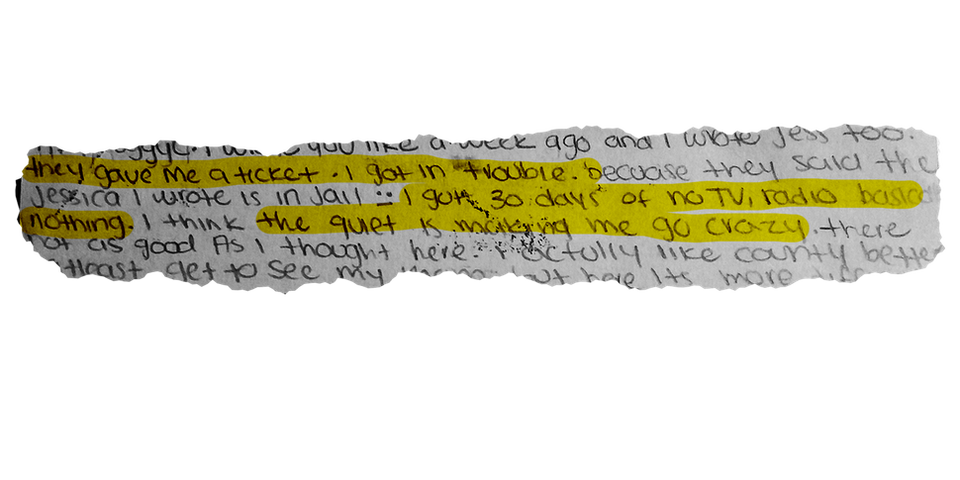 you like a week ago and I wrote Jess too.
they gave me a ticket. I got in trouble. because they said the
Jessica I wrote is in Jail :- I gott 30 days of no TV, radio
nothing. I think the quiet is making me go crazy. there
as good As I thought here. I actually like county
get to see my but here Its more